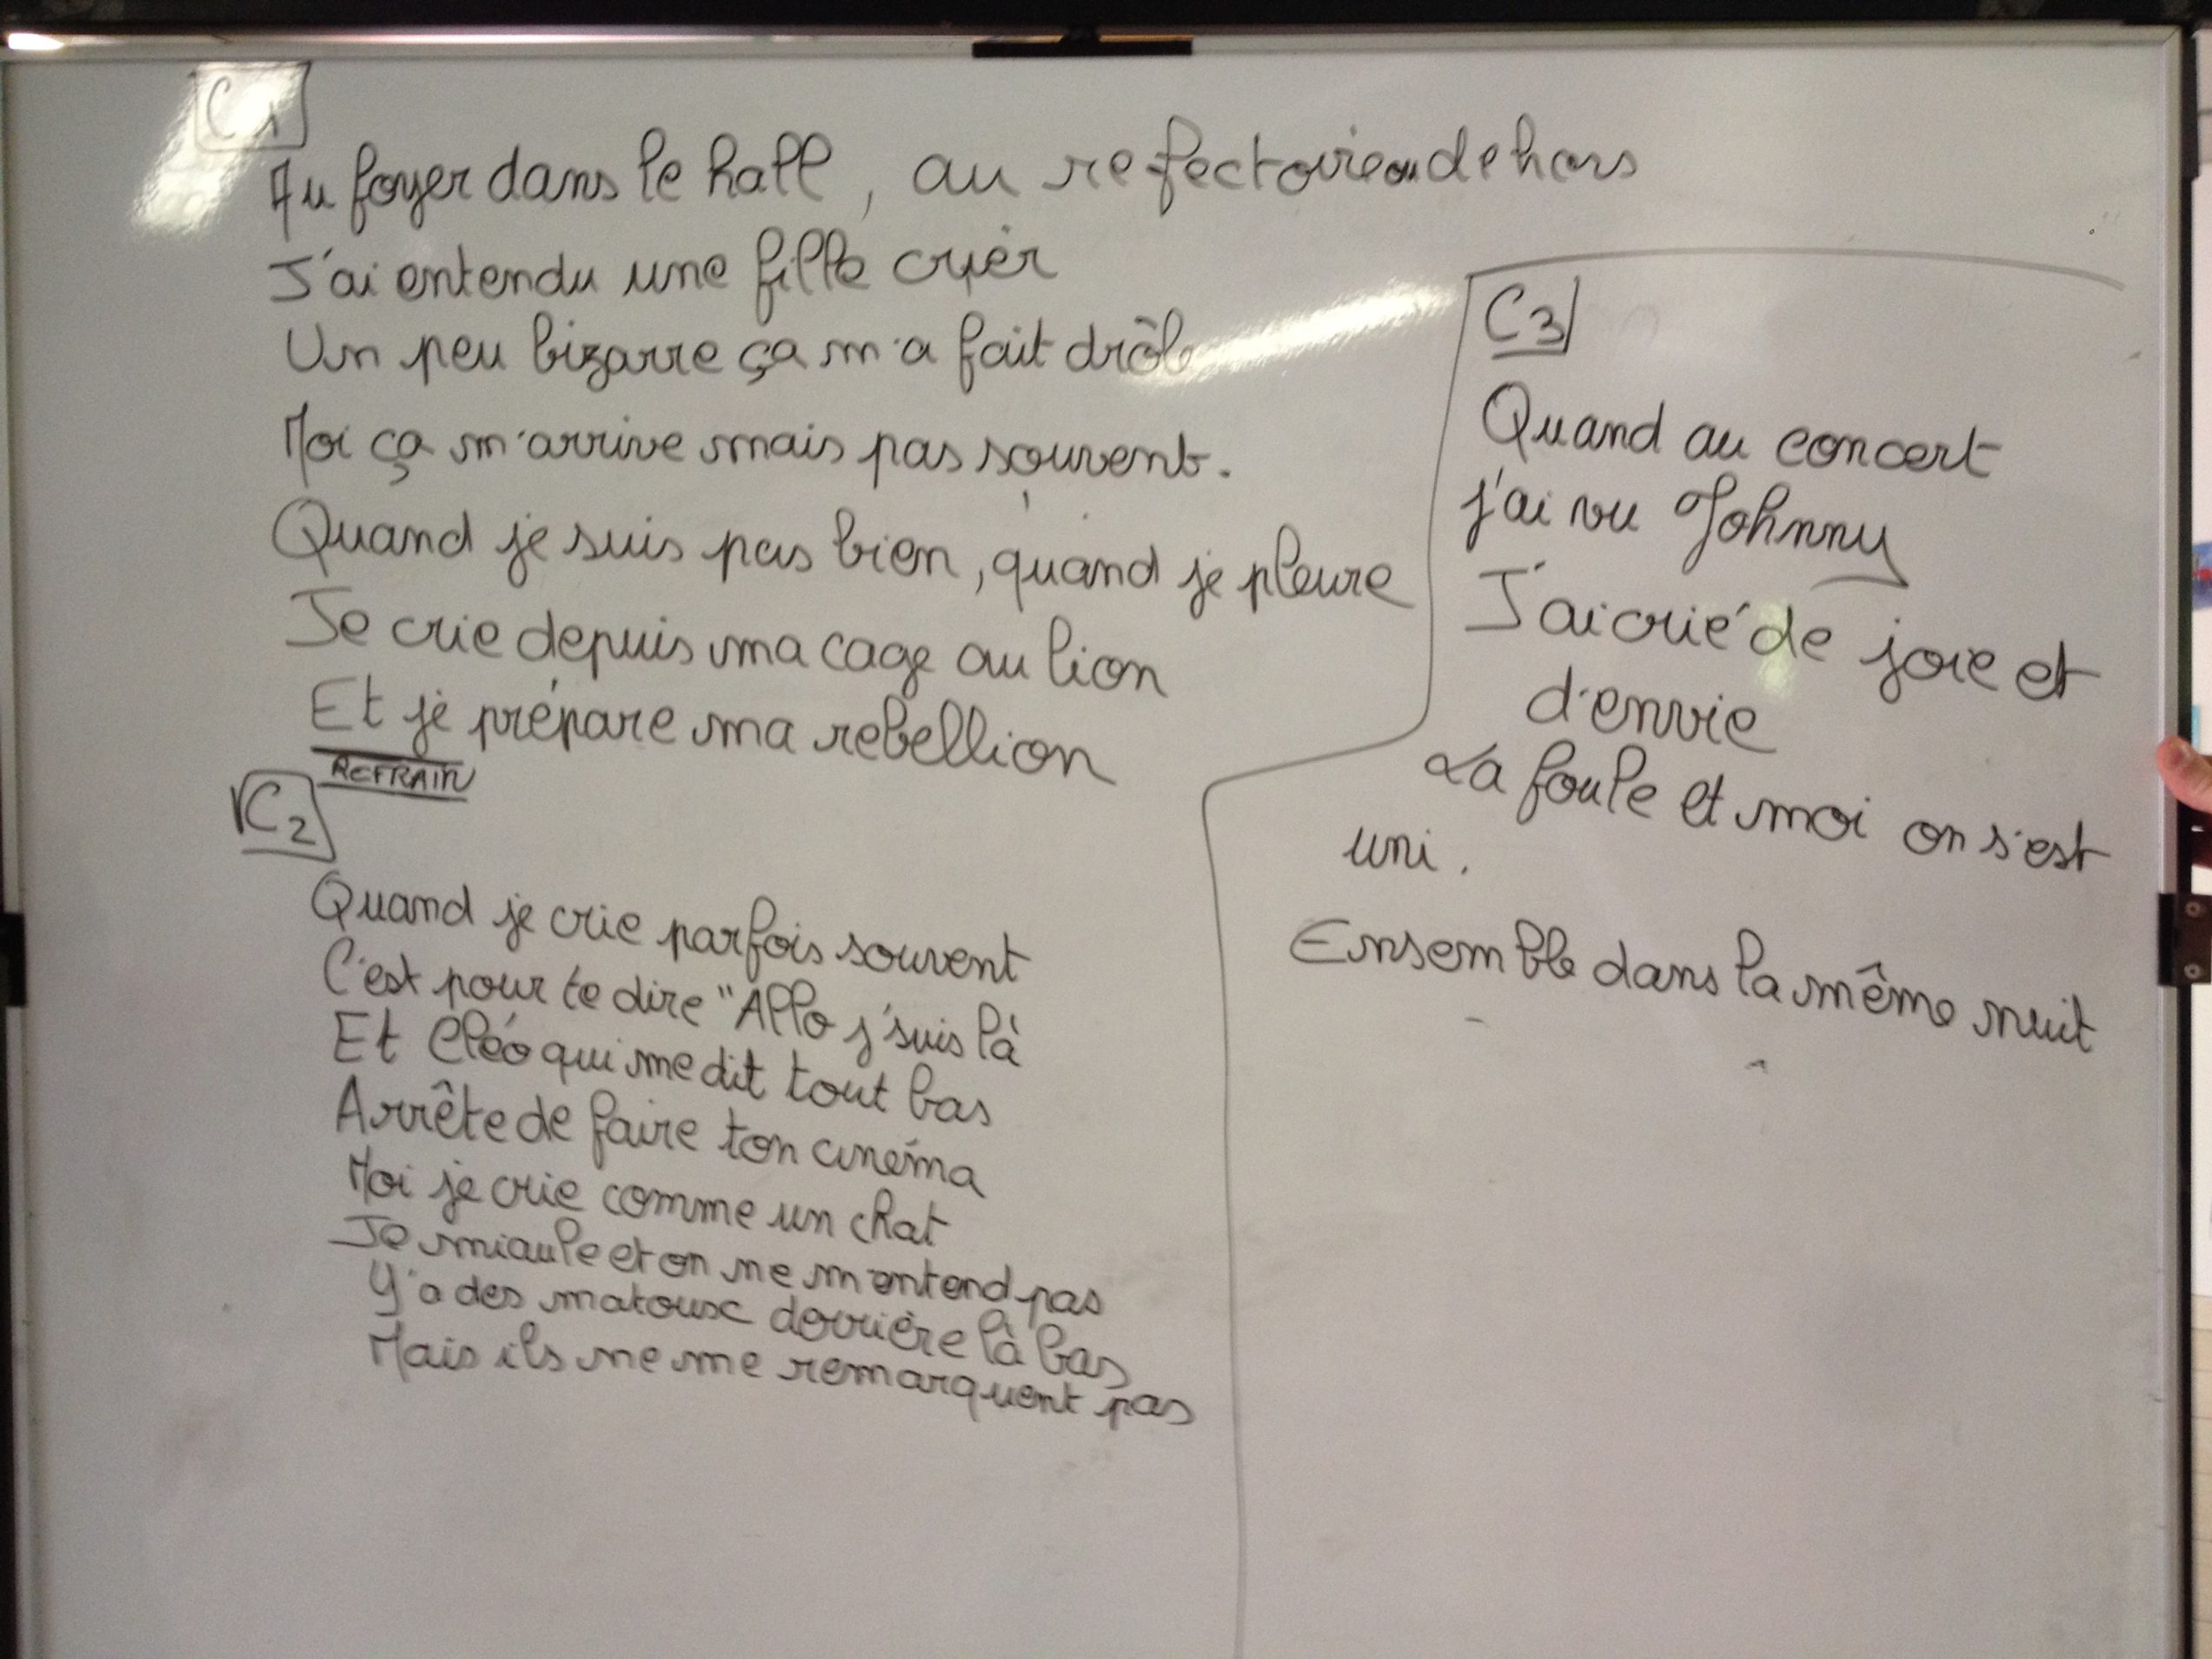 C1
Au foyer dans le hall, au refectoire ou dehors
J'ai entendu une fille crier
Un peu bizarre ça m'a fait drôle
Moi ça m'arrive mais pas souvent.
Quand je suis pas bien, quand je pleure
Je crie depuis ma cage au lion
Et je prépare ma rebellion
REFRAIN
C2
Quand je crie parfois souvent
C'est pour te dire "Allo j'suis là
Et Cléo qui me dit tout bas
Arrête de faire ton cinéma
Moi je crie comme un chat
Je miaule et on ne m'entend pas
Y'a des matoux derrière là bas
Mais ils ne me remarquent pas
C3
Quand au concert
j'ai vu Johnny
J'ai crié de joie et
d'envie
La foule et moi on s'est
uni.
Ensemble dans la même nuit